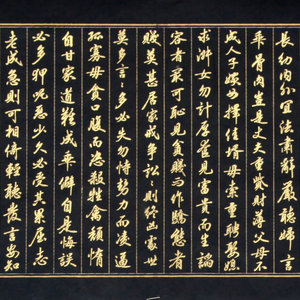 長幼內外宜法肅辭嚴聽婦言
乖骨肉豈是丈夫重貲財薄父母不
成人子嫁女擇佳婿毋索重聘娶媳
求淑女勿計厚奩見富貴而生諂
容者最可恥見貧賤而作驕態者
賤莫甚居家戒爭訟〻則終凶處世
莫多言〻多必失勿恃勢力而凌逼
孤寡毋貪口腹而恣殺牲禽頹惰
自甘家道難成乖僻自是悔誤
必多狎昵惡少久必受其累屈志
老成急則可相倚輕聽發言安知